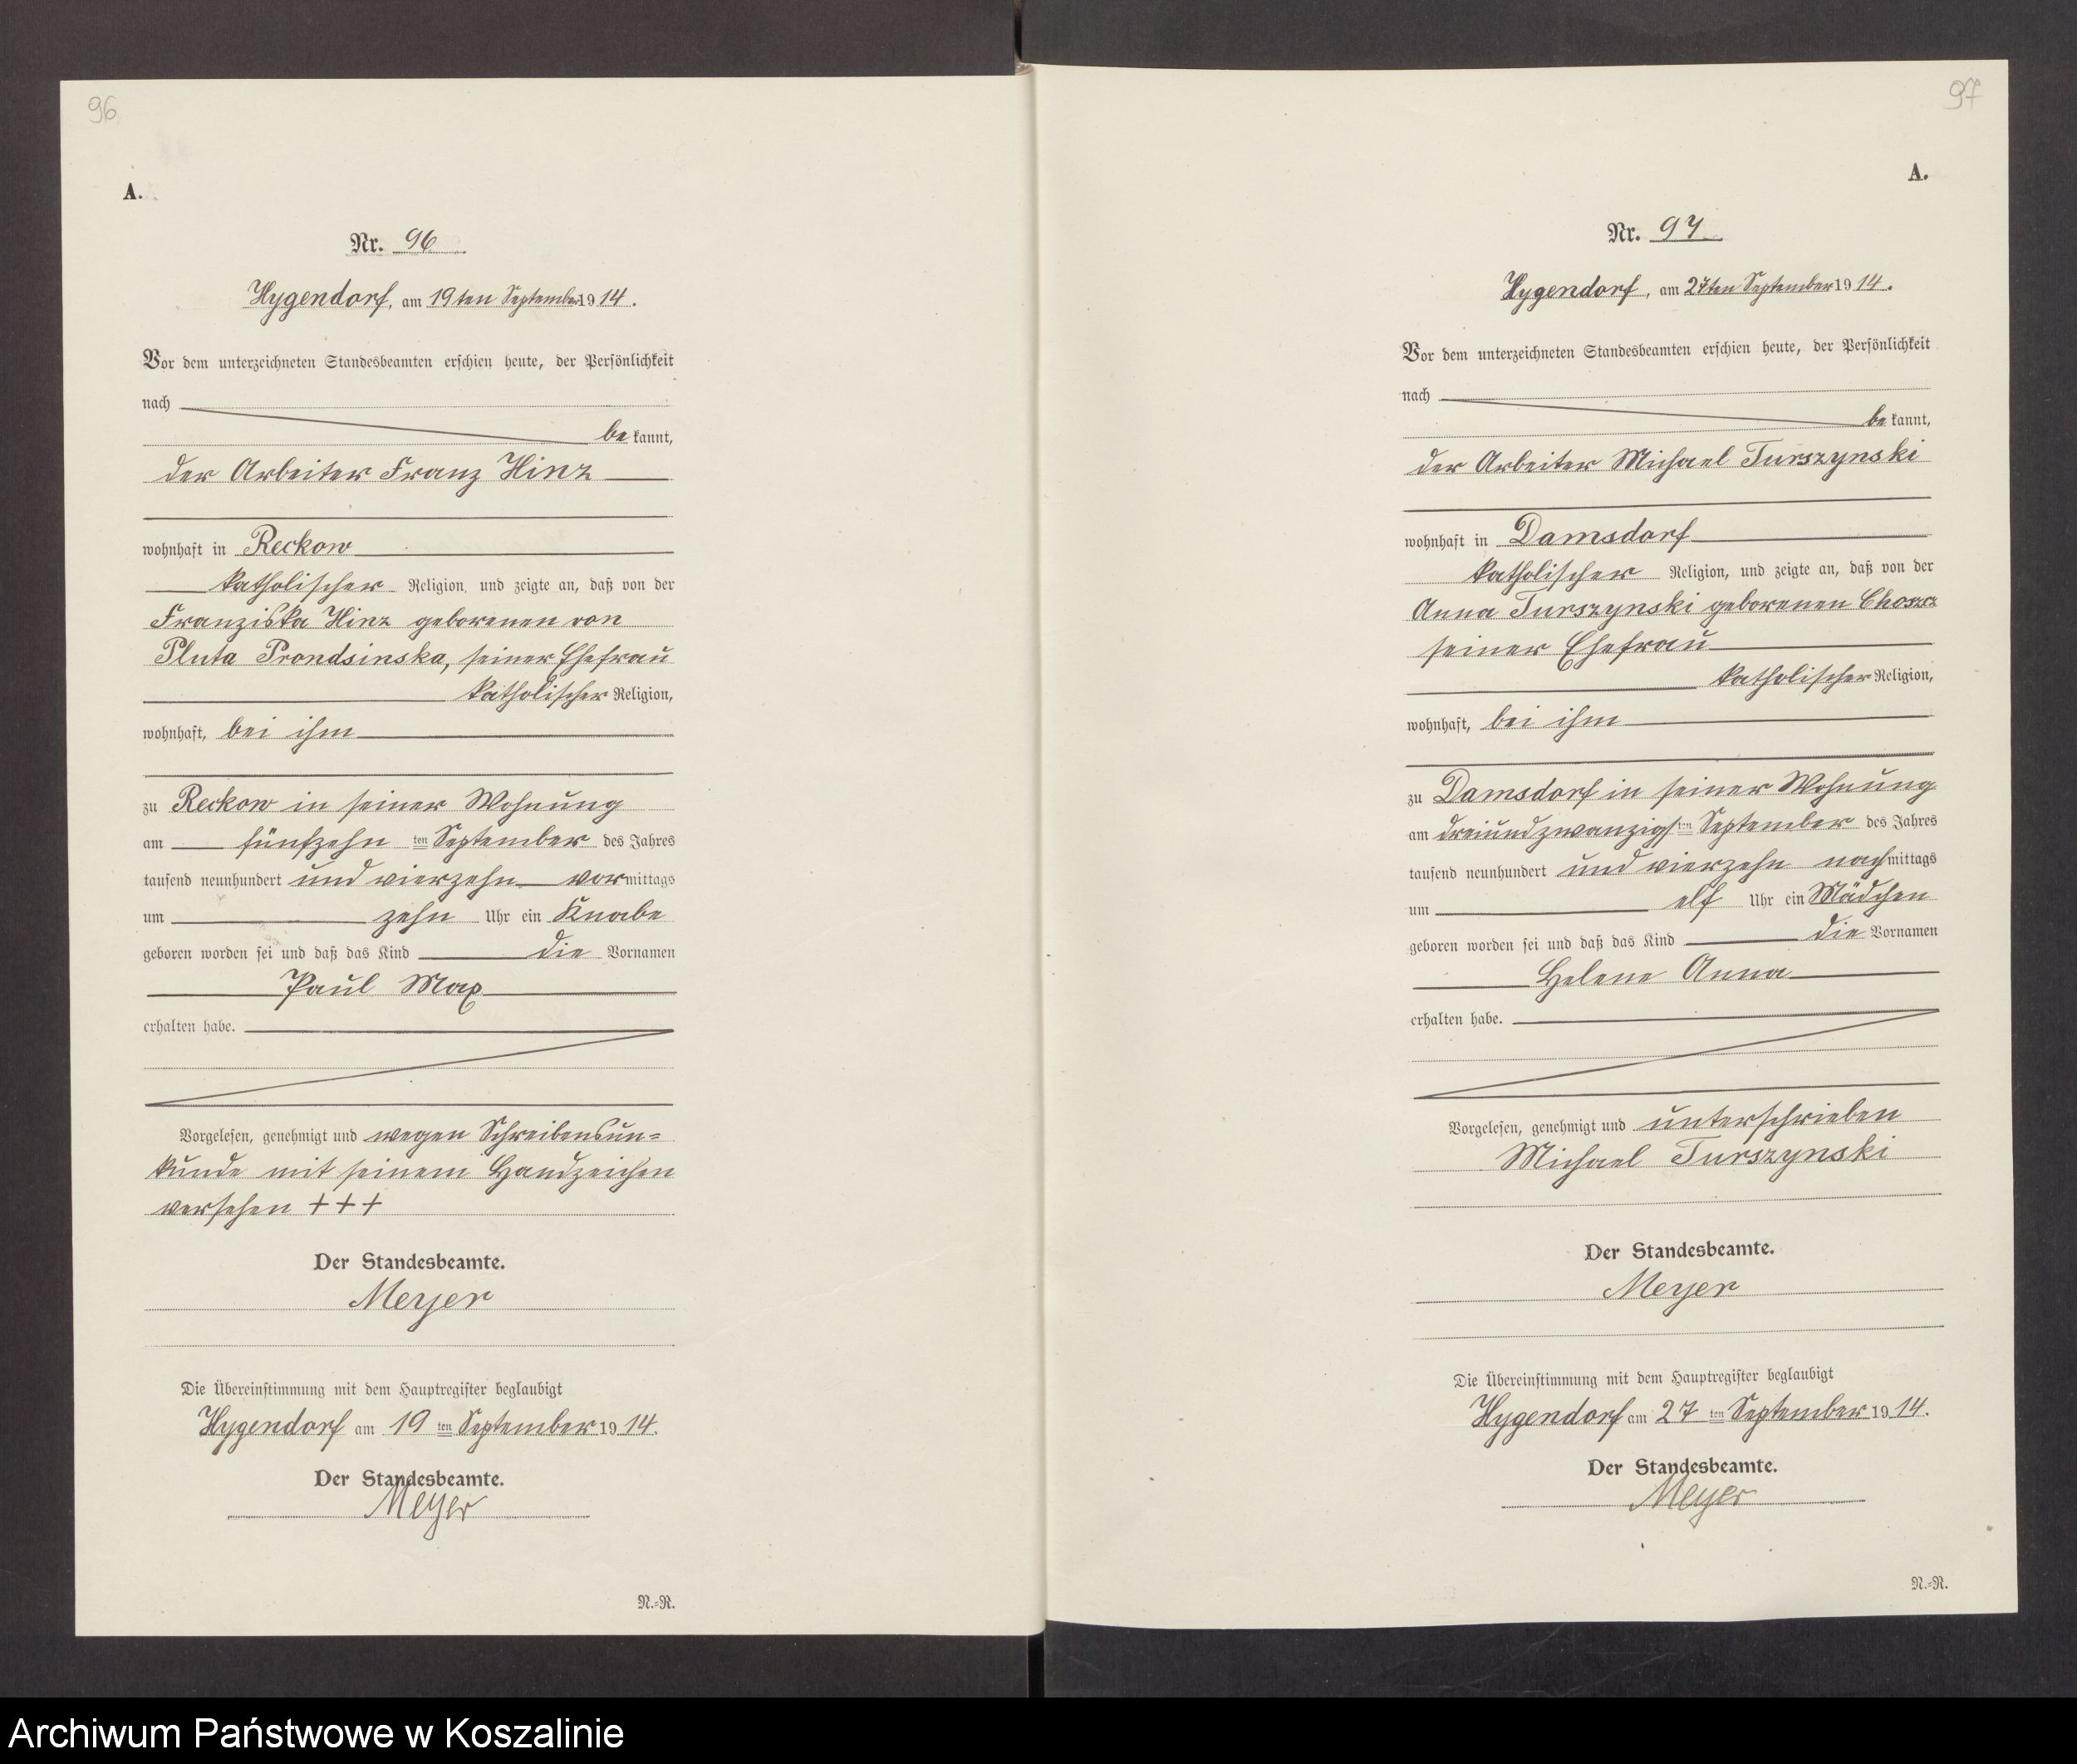 96
A.
Nr. 96
Hygendorf, am 19ten September 1914.
Vor dem unterzeichneten Standesbeamten erschien heute, der Persönlichkeit
nach
bekannt,
der Arbeiter Franz Hinz
wohnhaft in Reckow
katholischer Religion, und zeigte an, daß von der
Franziska Hinz geborenen von
Pluta Prondsinska, seiner Ehefrau
katholischer Religion,
wohnhaft, bei ihm
zu Reckow in seiner Wohnung
am fünfzehn ten September des Jahres
tausend neunhundert und vierzehn vormittags
um zehn Uhr ein Knabe
geboren worden sei und daß das Kind die Vornamen
Paul Max
erhalten habe.
Vorgelesen, genehmigt und wegen Schreibensun-
kunde mit seinem Handzeichen
versehen +++
Der Standesbeamte.
Meyer
Die Übereinstimmung mit dem Hauptregister beglaubigt
Hygendorf am 19 ten September 1914.
Der Standesbeamte.
Meyer
N.=R.
97
A.
Nr. 97
Hygendorf, am 27ten September 1914.
Vor dem unterzeichneten Standesbeamten erschien heute, der Persönlichkeit
nach
bekannt,
der Arbeiter Michael Turszynski
wohnhaft in Damsdorf
katholischer Religion, und zeigte an, daß von der
Anna Turszynski geborenen
seiner Ehefrau
katholischer Religion,
wohnhaft, bei ihm
zu Damsdorf in seiner Wohnung
am dreiundzwanzigsten September des Jahres
tausend neunhundert und vierzehn nachmittags
um elf Uhr ein Mädchen
geboren worden sei und daß das Kind die Vornamen
Helene Anna
erhalten habe.
Vorgelesen, genehmigt und unterschrieben
Michael Turszynski
Der Standesbeamte.
Meyer
Die Übereinstimmung mit dem Hauptregister beglaubigt
Hygendorf am 27 ten September 1914.
Der Standesbeamte.
Meyer
N.=R.
Archiwum Państwowe w Koszalinie